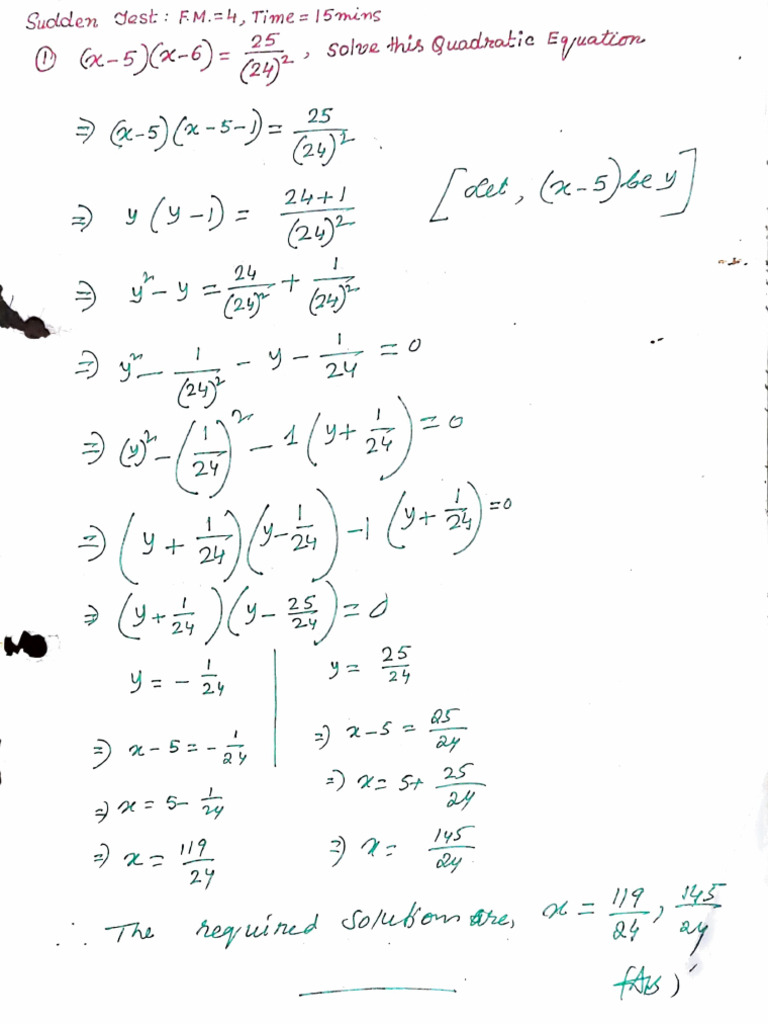 Sudden Test : F.M.=4, Time = 15mins
① (x-5)(x-6) = 25/(24)², solve this Quadratic Equation
⇒ (x-5)(x-5-1) = 25/(24)²
⇒ y(y-1) = 24+1/(24)² [Let, (x-5) be y]
⇒ y² - y = 24/(24)² + 1/(24)²
⇒ y² - 1/(24)² - y - 1/24 = 0
⇒ (y)² - (1/24)² - 1(y + 1/24) = 0
⇒ (y + 1/24)(y - 1/24) - 1(y + 1/24) = 0
⇒ (y + 1/24)(y - 25/24) = 0
y = - 1/24 | y = 25/24
⇒ x - 5 = - 1/24 | ⇒ x - 5 = 25/24
⇒ x = 5 - 1/24 ⇒ x = 5 + 25/24
⇒ x = 119/24 ⇒ x = 145/24
∴ The required solution are, x = 119/24, 145/24
(Ans)